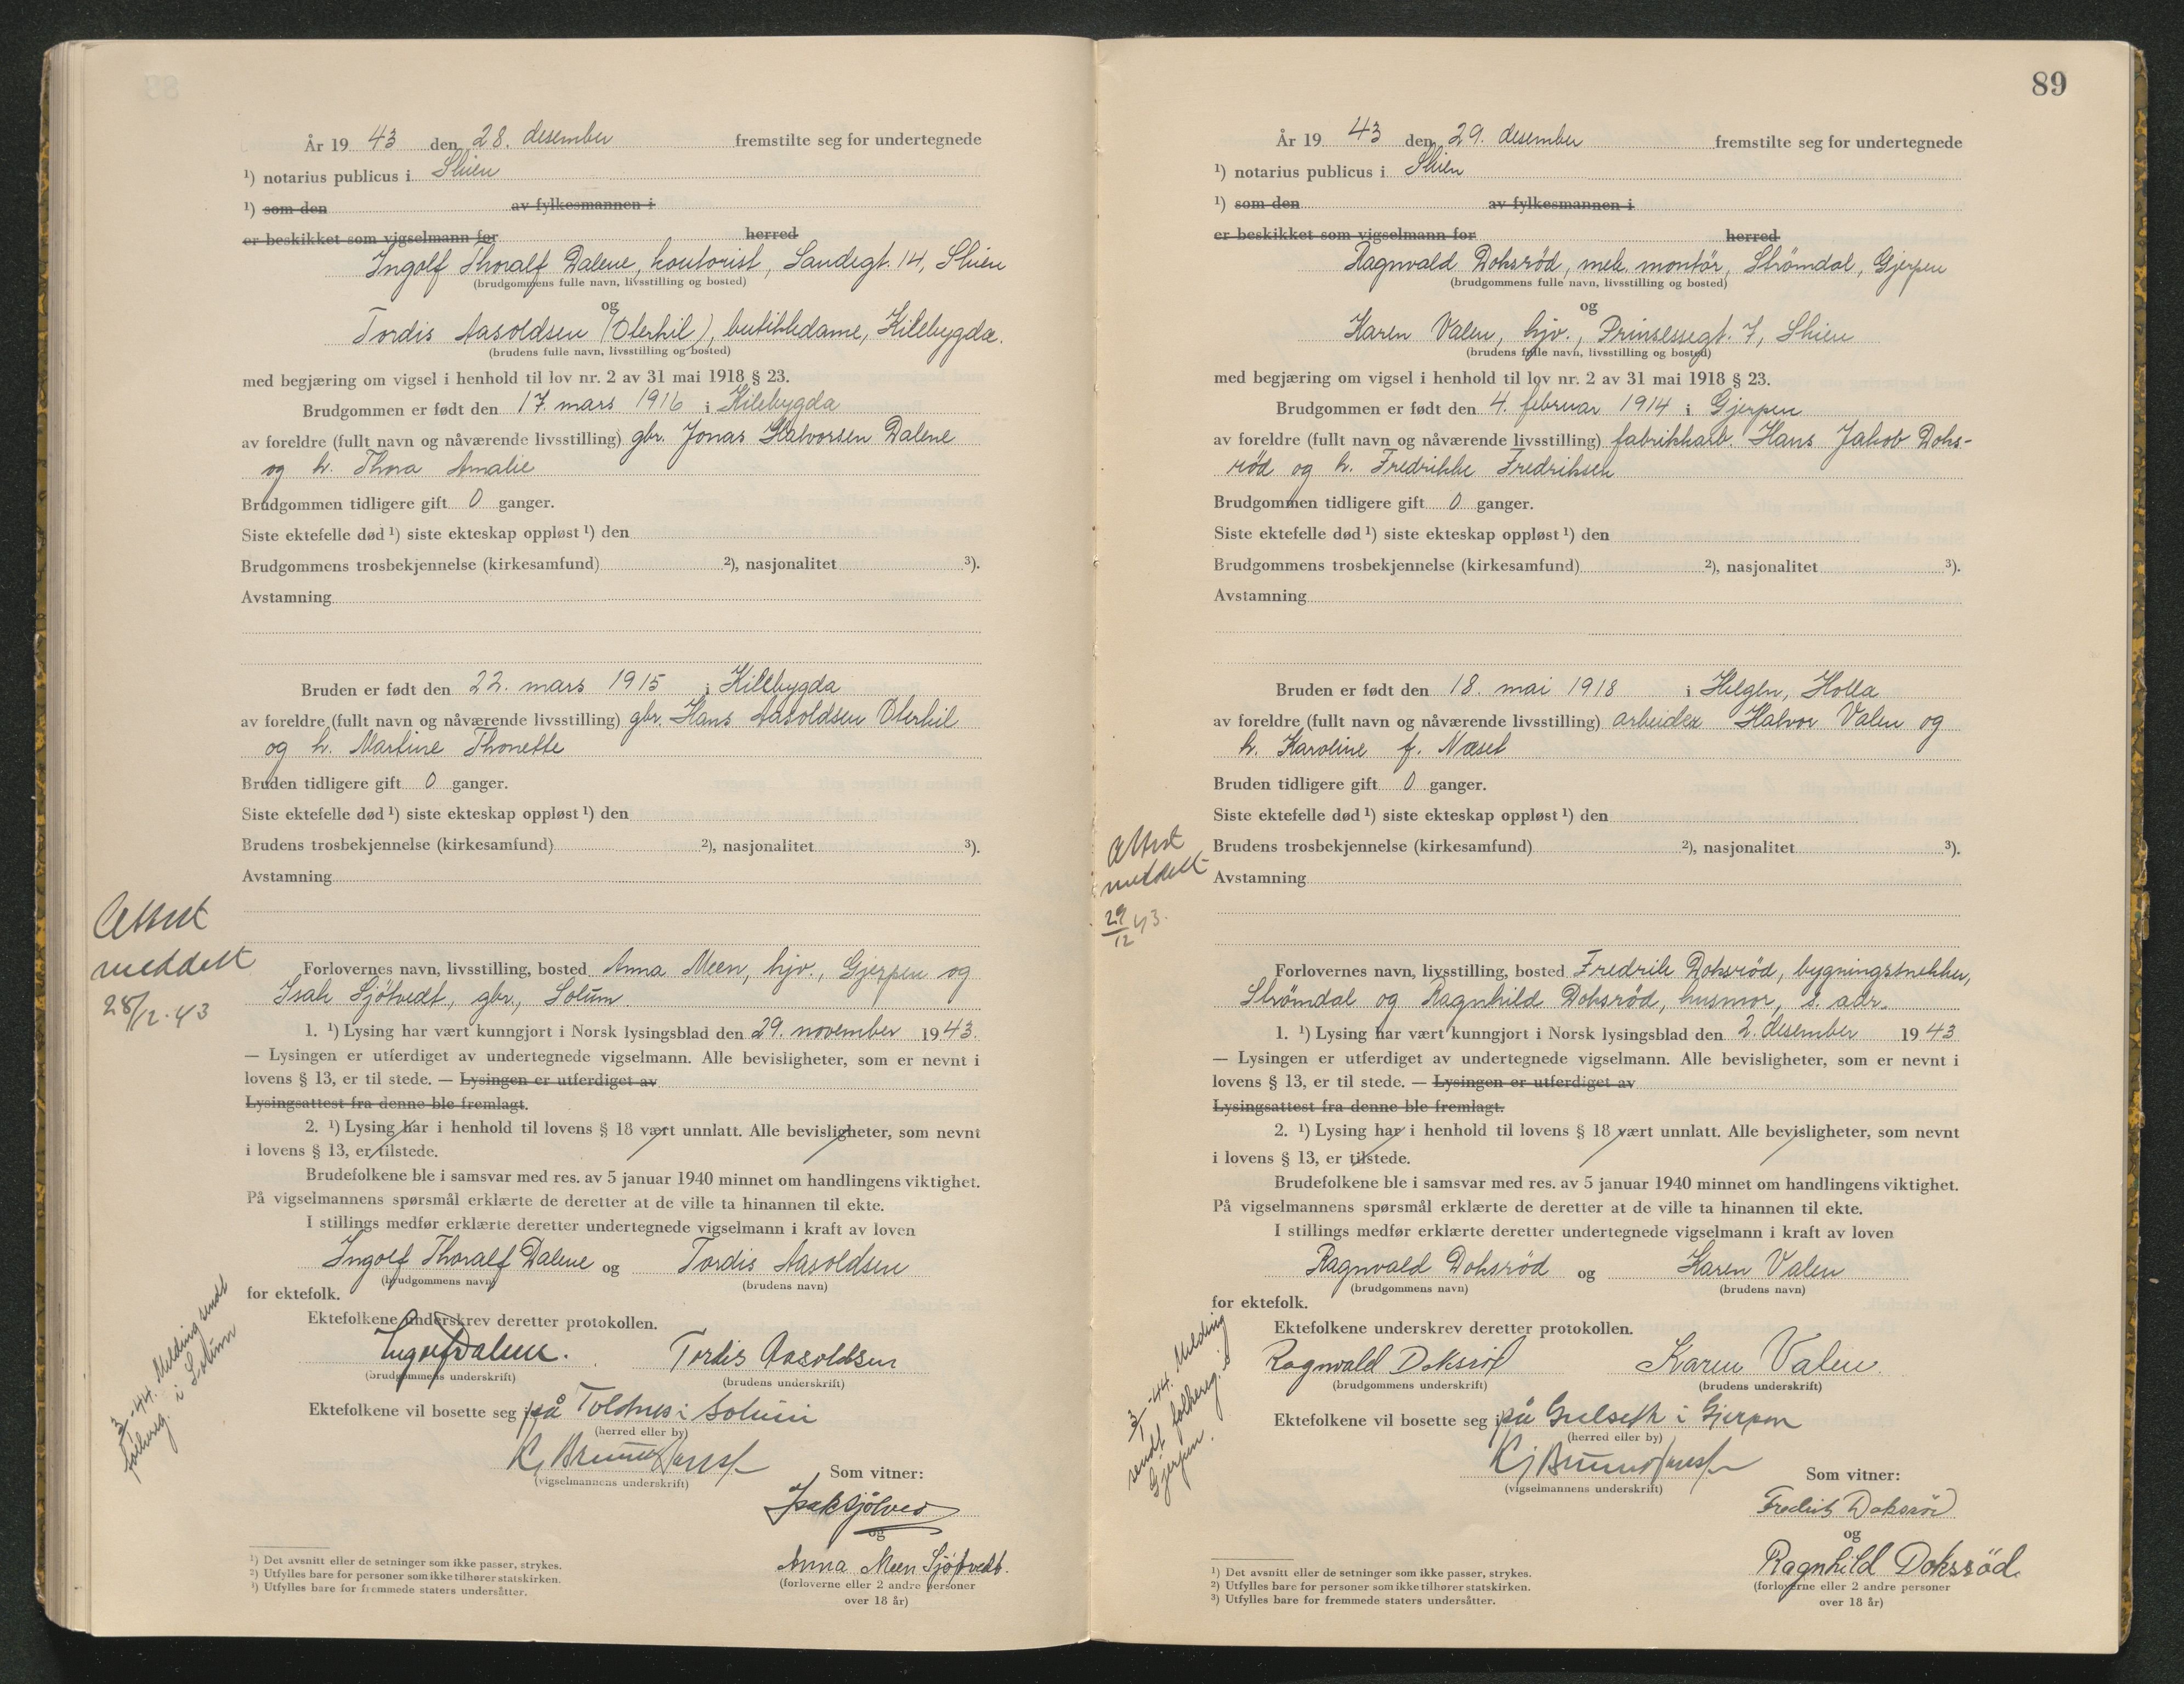 År 19 43 den 28. desember fremstilte seg for undertegnede
¹) notarius publicus i Skien
¹) som den av fylkesmannen i
er beskikket som vigselmann for herred
Ingolf Thoralf Dalene, kontorist, Landegt. 14, Skien
(brudgommens fulle navn, livsstilling og bosted)
og
Tordis Aasoldsen (Oterkil), butikkdame, Kilebygda.
(brudens fulle navn, livsstilling og bosted)
med begjæring om vigsel i henhold til lov nr. 2 av 31 mai 1918 § 23.
Brudgommen er født den 17. mars 1916 i Kilebygda
av foreldre (fullt navn og nåværende livsstilling) gbr. Jonas Halvorsen Dalene
og h. Thora Amalie
Brudgommen tidligere gift 0 ganger.
Siste ektefelle død ¹) siste ekteskap oppløst ¹) den
Brudgommens trosbekjennelse (kirkesamfund) ²), nasjonalitet ³).
Avstamning
Bruden er født den 22. mars 1915 i Kilebygda
av foreldre (fullt navn og nåværende livsstilling) gbr. Hans Aasoldsen Oterkil
og h. Martine Thonette
Bruden tidligere gift 0 ganger.
Siste ektefelle død ¹) siste ekteskap oppløst ¹) den
Brudens trosbekjennelse (kirkesamfund) ²), nasjonalitet ³).
Avstamning
Attest
meddelt
28/12.43
Forlovernes navn, livsstilling, bosted Anna Meen, hjv., Gjerpen og
Isak Sjötvedt, gbr., Solum
1. ¹) Lysing har vært kunngjort i Norsk lysingsblad den 29. november 1943.
— Lysingen er utferdiget av undertegnede vigselmann. Alle bevisligheter, som er nevnt i
lovens § 13, er til stede. — Lysingen er utferdiget av
Lysingsattest fra denne ble fremlagt.
2. ¹) Lysing har i henhold til lovens § 18 vært unnlatt. Alle bevisligheter, som nevnt
i lovens § 13, er tilstede.
Brudefolkene ble i samsvar med res. av 5 januar 1940 minnet om handlingens viktighet.
På vigselmannens spørsmål erklærte de deretter at de ville ta hinannen til ekte.
I stillings medfør erklærte deretter undertegnede vigselmann i kraft av loven
Ingolf Thoralf Dalene og Tordis Aasoldsen
(brudgommens navn) (brudens navn)
for ektefolk.
Ektefolkene underskrev deretter protokollen.
Ingolf Dalene. Tordis Aasoldsen
(brudgommens underskrift) (brudens underskrift)
3/1-44. Melding sendt
folkereg. i Solum
Ektefolkene vil bosette seg på Toldnes i Solum
(herred eller by)
(vigselmannens underskrift)
Som vitner:
Isak Sjötved
og
Anna Meen Sjøtvedt.
(forloverne eller 2 andre personer
over 18 år)
¹) Det avsnitt eller de setninger som ikke passer, strykes.
²) Utfylles bare for personer som ikke tilhører statskirken.
³) Utfylles bare for fremmede staters undersåtter.
89
År 19 43 den 29. desember fremstilte seg for undertegnede
¹) notarius publicus i Skien
¹) som den av fylkesmannen i
er beskikket som vigselmann for herred
Ragnvald Doksröd, mek. montör, Strömdal, Gjerpen
(brudgommens fulle navn, livsstilling og bosted)
og
Karen Valen, hjv., Prinsessegt. 7, Skien
(brudens fulle navn, livsstilling og bosted)
med begjæring om vigsel i henhold til lov nr. 2 av 31 mai 1918 § 23.
Brudgommen er født den 4. februar 1914 i Gjerpen
av foreldre (fullt navn og nåværende livsstilling) fabrikkarb. Hans Jakob Doks-
röd og h. Fredrikke Fredriksen
Brudgommen tidligere gift 0 ganger.
Siste ektefelle død ¹) siste ekteskap oppløst ¹) den
Brudgommens trosbekjennelse (kirkesamfund) ²), nasjonalitet ³).
Avstamning
Bruden er født den 18. mai 1918 i Helgen, Holla
av foreldre (fullt navn og nåværende livsstilling) arbeider Halvor Valen og
h. Karoline f. Næset
Bruden tidligere gift 0 ganger.
Siste ektefelle død ¹) siste ekteskap oppløst ¹) den
Brudens trosbekjennelse (kirkesamfund) ²), nasjonalitet ³).
Avstamning
Attest
meddelt
29/12 43.
Forlovernes navn, livsstilling, bosted Fredrik Doksröd, bygningssnekker,
Strömdal og Ragnhild Doksröd, husmor, s. adr.
1. ¹) Lysing har vært kunngjort i Norsk lysingsblad den 2. desember 1943
— Lysingen er utferdiget av undertegnede vigselmann. Alle bevisligheter, som er nevnt i
lovens § 13, er til stede. — Lysingen er utferdiget av
Lysingsattest fra denne ble fremlagt.
2. ¹) Lysing har i henhold til lovens § 18 vært unnlatt. Alle bevisligheter, som nevnt
i lovens § 13, er tilstede.
Brudefolkene ble i samsvar med res. av 5 januar 1940 minnet om handlingens viktighet.
På vigselmannens spørsmål erklærte de deretter at de ville ta hinannen til ekte.
I stillings medfør erklærte deretter undertegnede vigselmann i kraft av loven
Ragnvald Doksröd og Karen Valen
(brudgommens navn) (brudens navn)
for ektefolk.
Ektefolkene underskrev deretter protokollen.
Ragnvald Doksröd Karen Valen.
(brudgommens underskrift) (brudens underskrift)
3/1-44. Melding
sendt folkereg. i
Gjerpen.
Ektefolkene vil bosette seg på Gulseth i Gjerpen
(herred eller by)
(vigselmannens underskrift)
Som vitner:
Fredrik Doksröd
og
Ragnhild Doksröd.
(forloverne eller 2 andre personer
over 18 år)
¹) Det avsnitt eller de setninger som ikke passer, strykes.
²) Utfylles bare for personer som ikke tilhører statskirken.
³) Utfylles bare for fremmede staters undersåtter.